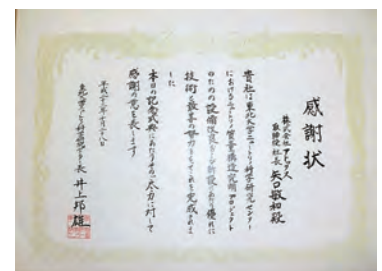 感謝状
株式会社 アトックス
取締役社長 矢口敏和殿
貴社は東北大学ニュートリノ科学研究センター
におけるニュートリノ質量構造究明プロジェクト
のための設備改良
優れた
技術と最善の努力をもってこれを完成されま
した
本日の記念式典にあたりそのご尽力に対して
感謝の意を表します
平成二十三年十月十八日
東北大学ニュートリノ科学研究センター長 井上邦雄